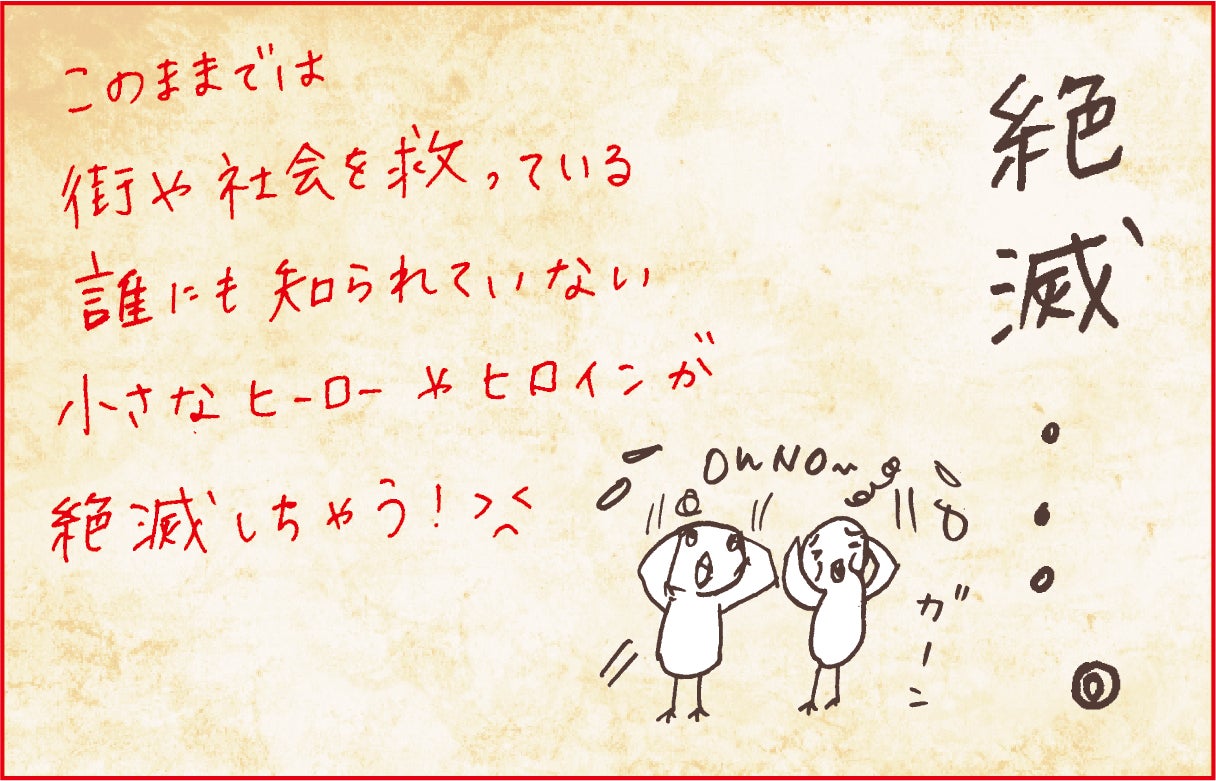 このままでは
街や社会を救っている
誰にも知られていない
小さなヒーローやヒロインが
絶滅しちゃう！><
絶滅・・・。
OH NO~
ガーン